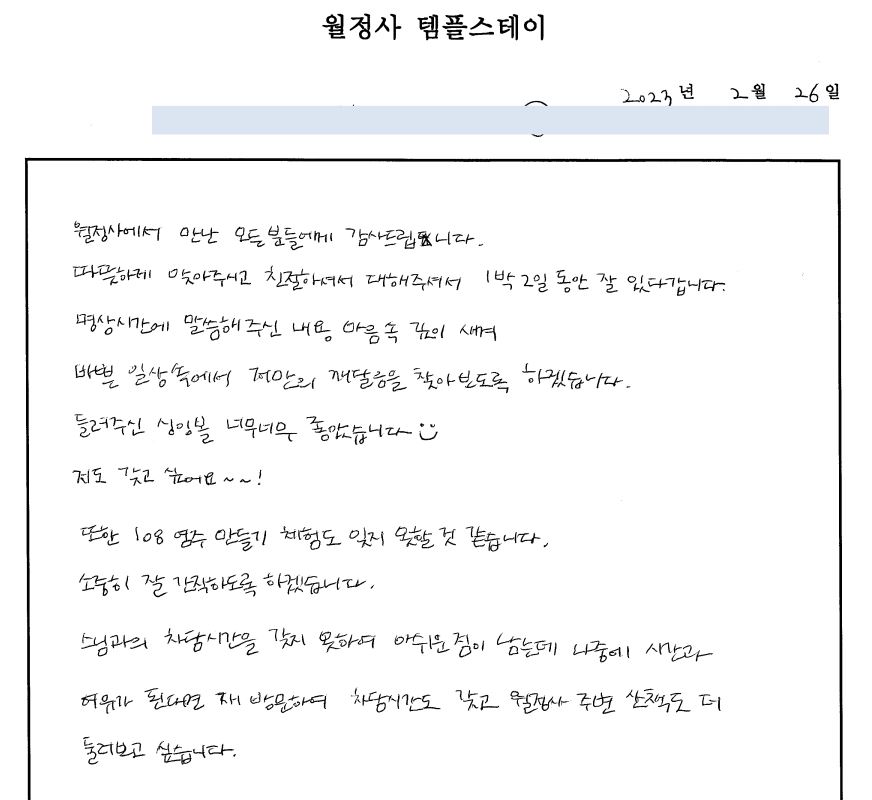 월정사 템플스테이
2023년 2월 26일
월정사에서 만난 모든분들에게 감사드립니다.
따뜻하게 맞아주시고 친절하셔서 대해주셔서 1박2일 동안 잘 있다갑니다.
명상시간에 말씀해주신 내용 마음속 깊이 새겨
바쁜 일상속에서 저만의 깨달음을 찾아보도록 하겠습니다.
들려주신 싱잉볼 너무너무 좋았습니다
저도 갖고 싶어요~~!
또한 108 염주 만들기 체험도 잊지 못할 것 같습니다.
소중히 잘 간직하도록 하겠습니다.
스님과의 차담시간을 갖지 못하여 아쉬운점이 남는데 나중에 시간과
여유가 된다면 재 방문하여 차담시간도 갖고 월정사 주변 산책도 더
둘러보고 싶습니다.